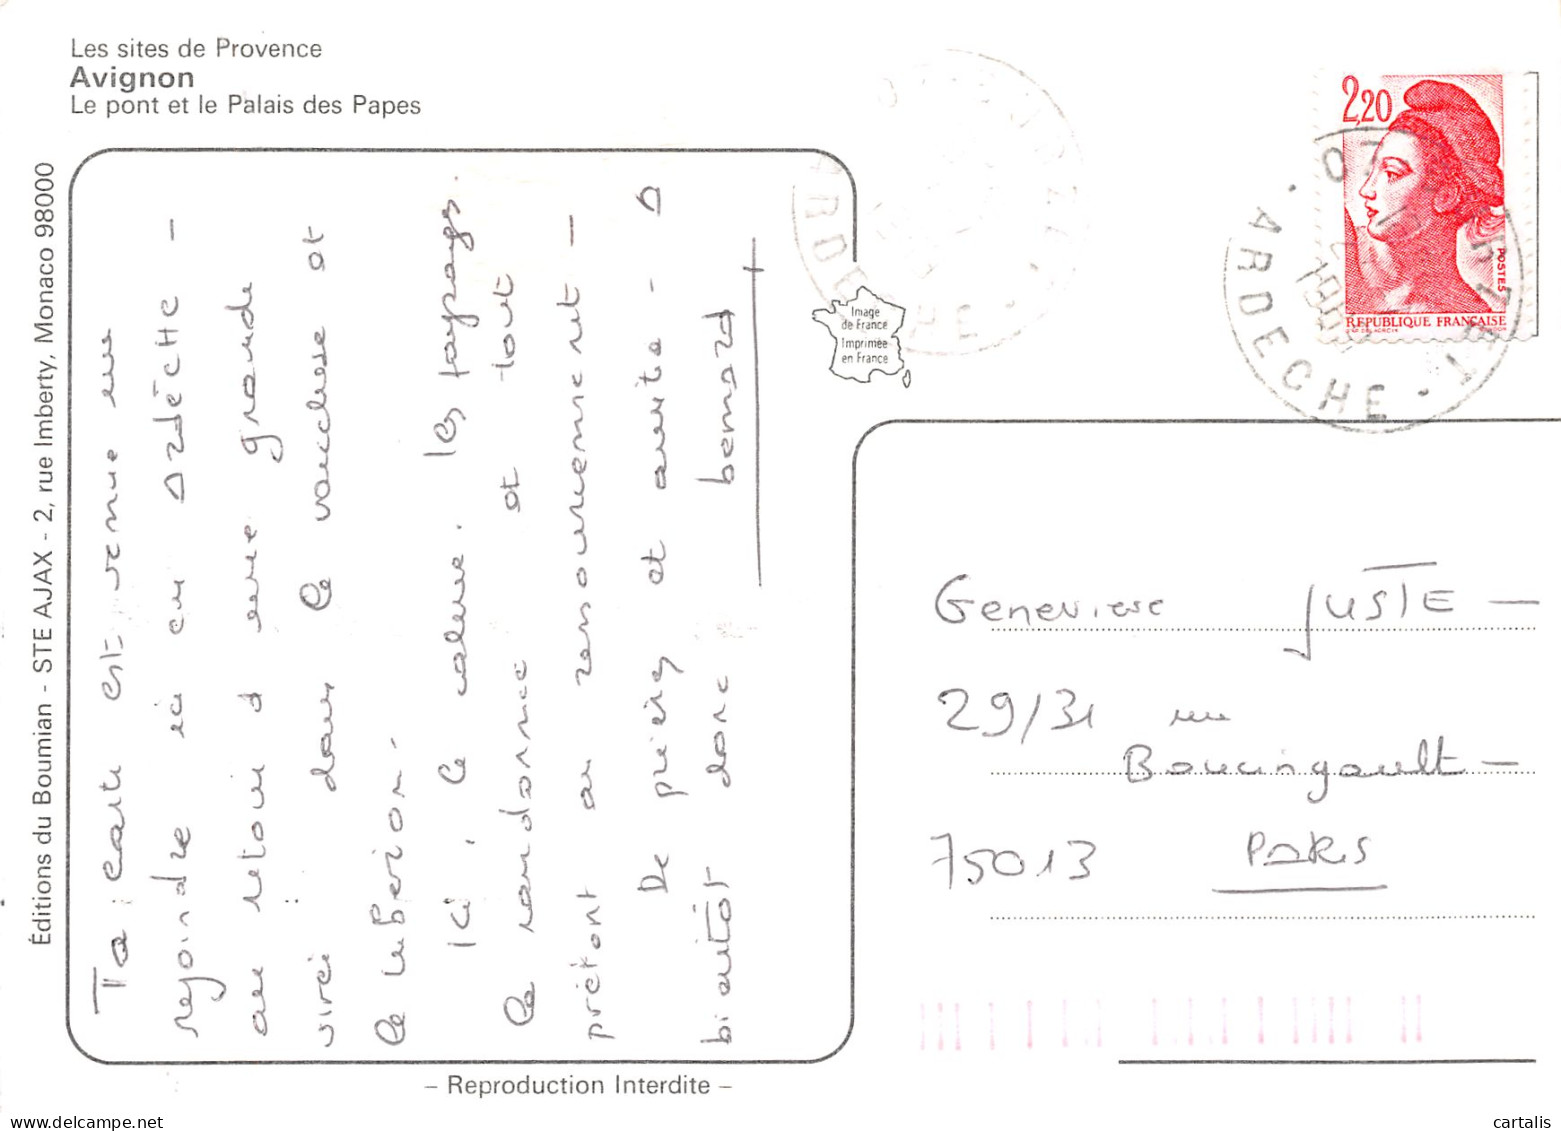 Les sites de Provence
Avignon
Le pont et le Palais des Papes
Éditions du Boumian - STE AJAX - 2, rue Imberty, Monaco 98000
Ta carte est venue me
rejoindre ici en ARDÈCHE -
au retour d une grande
virée dans le vaucluse et
le luberon.
Ici, le calme. les paysages
la randonnée et tout
prêtant au ressourcement -
De prières et amitié - à
bientôt donc bernard
Image
de France
Imprimée
en France
2,20
POSTES
REPUBLIQUE FRANÇAISE
07
ARDECHE
ARDECHE
Genevieve JUSTE -
29/31 rue
Boussingault -
75013 PARIS
- Reproduction Interdite -
cartalis